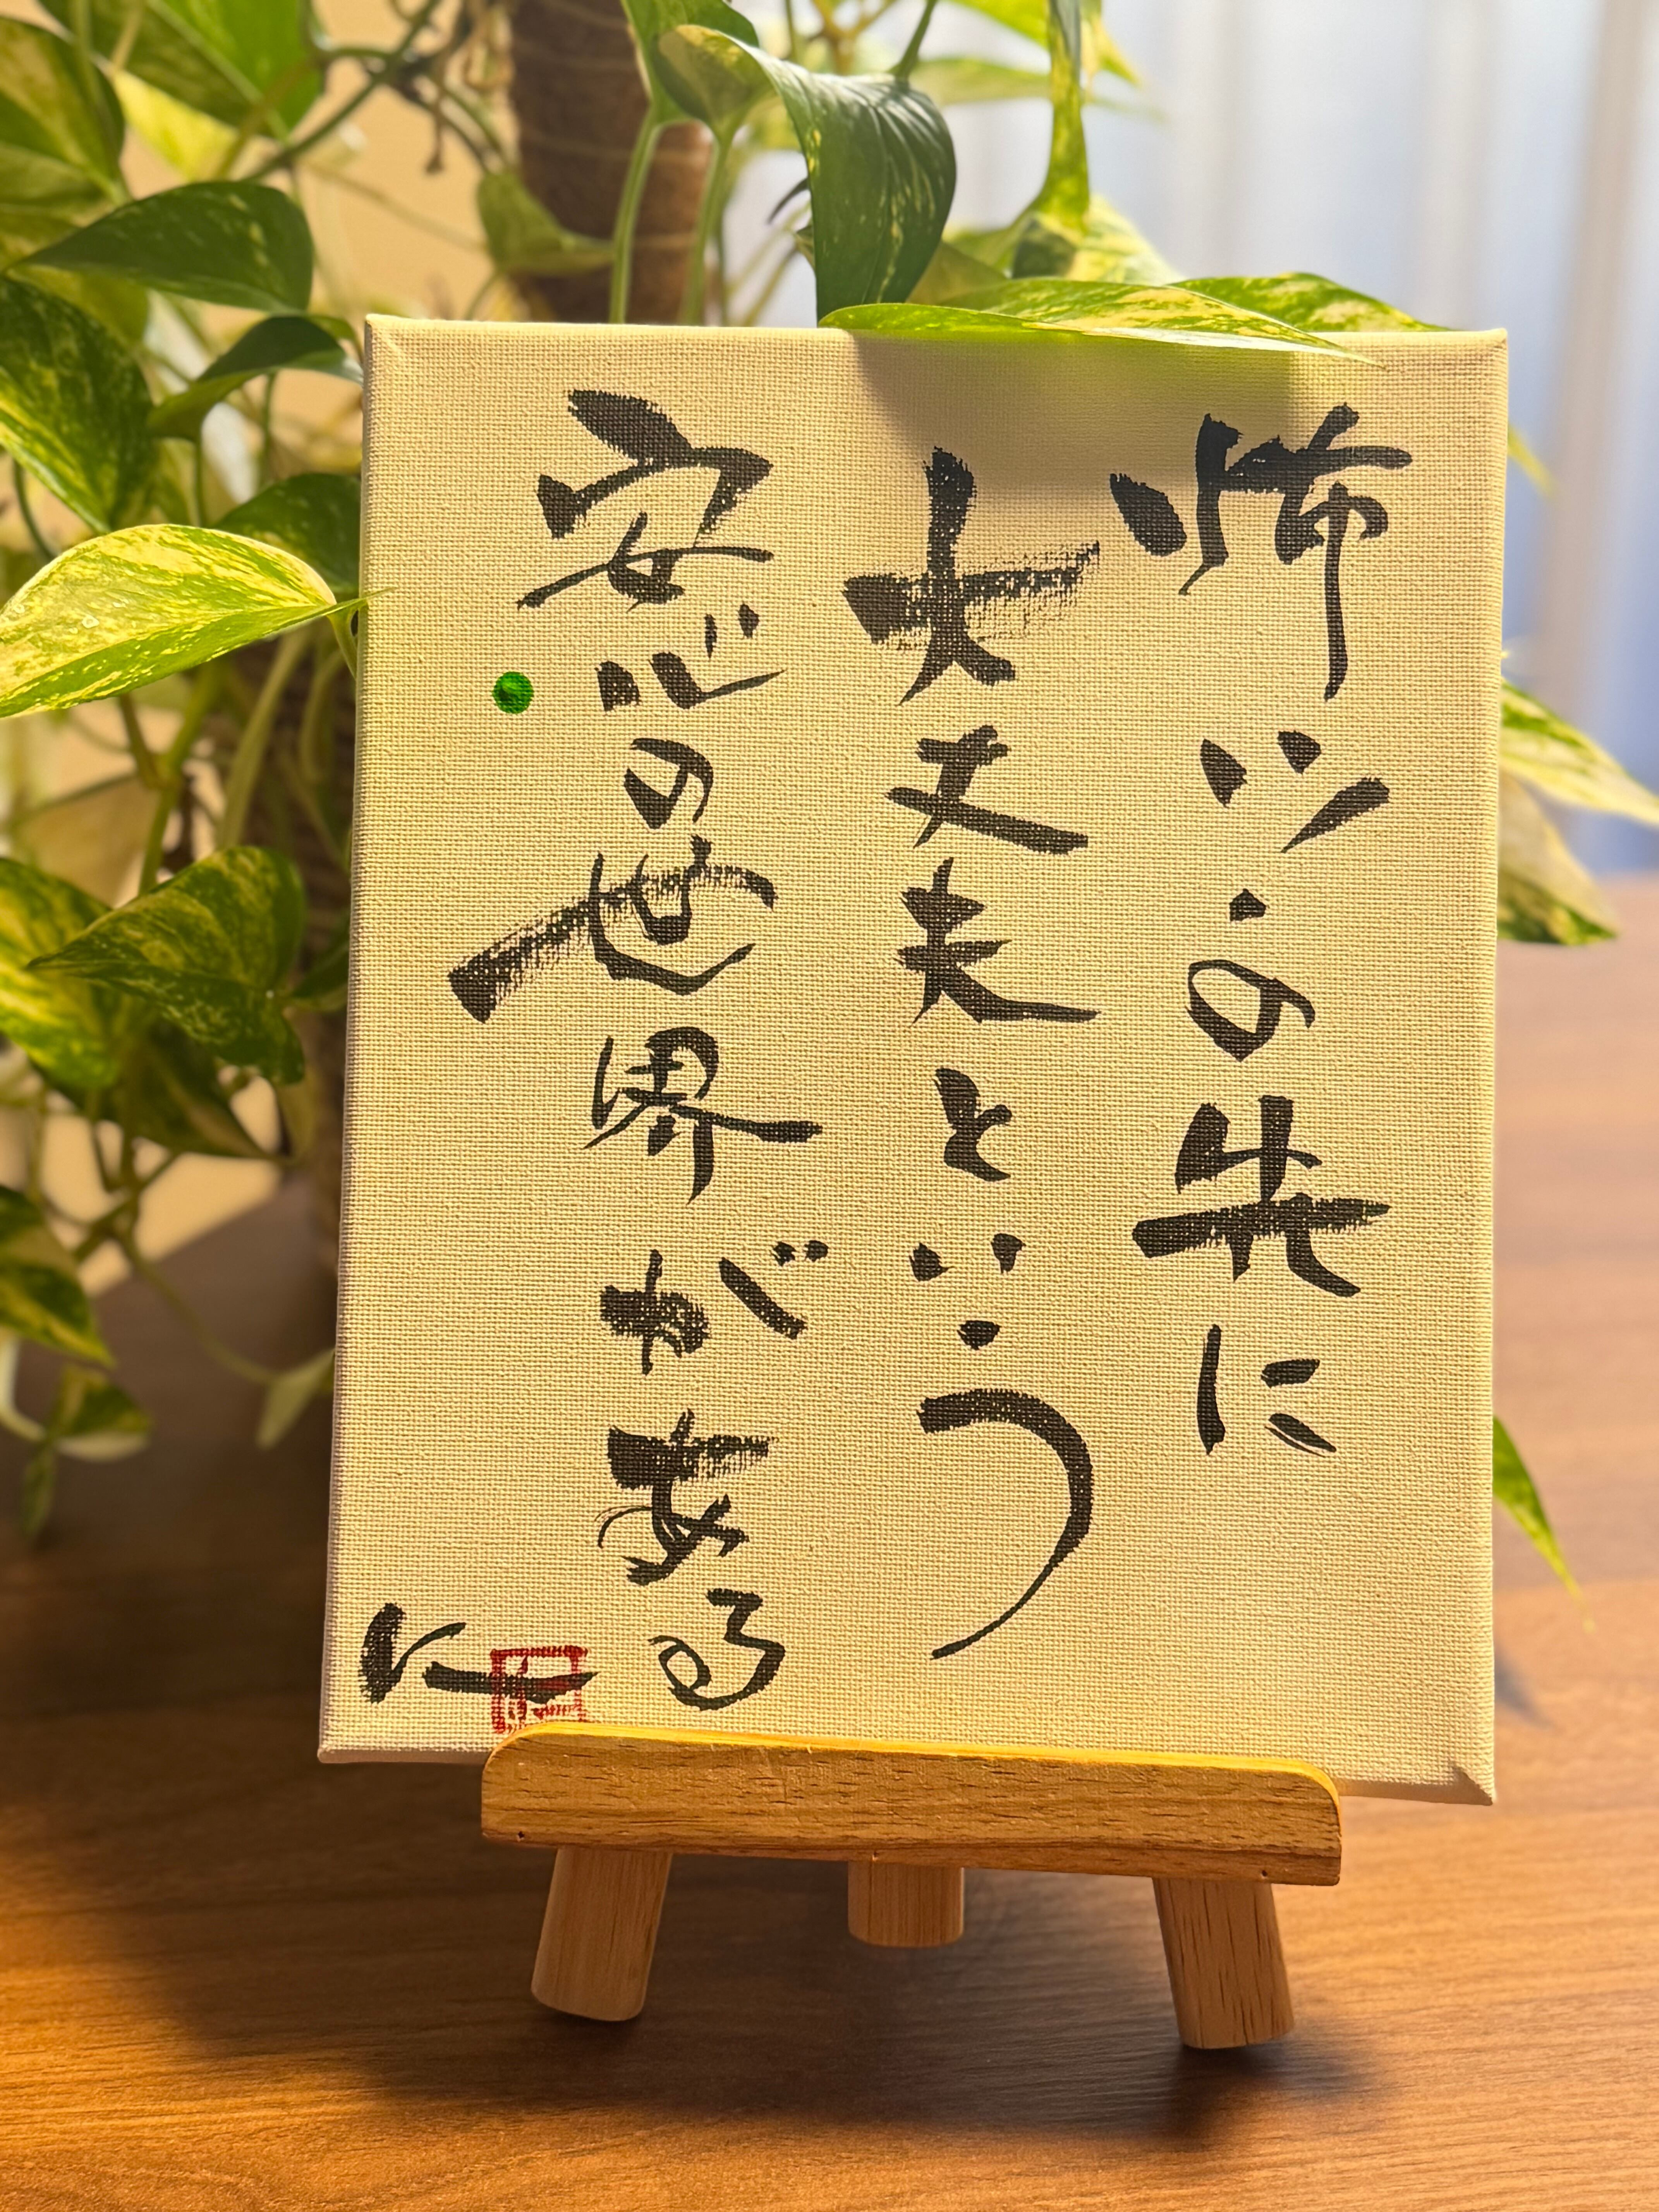 怖い！の先に
大丈夫という
安心の世界がある